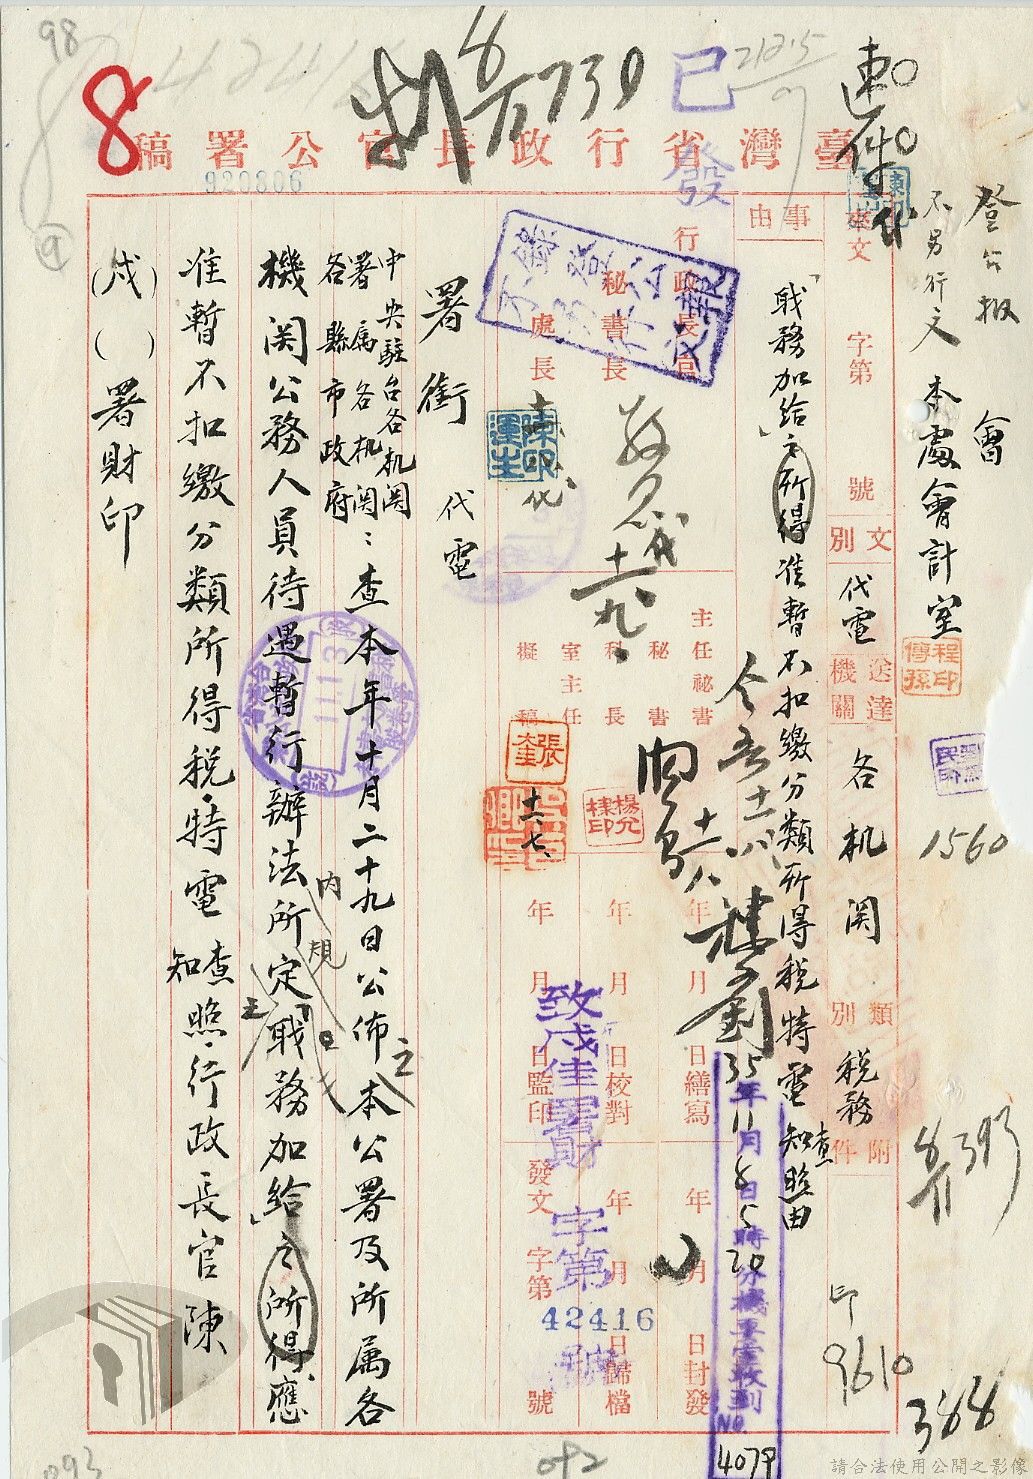 臺灣省行政長官公署稿
920806
已發
8
730
98
速件
登公報
不另行文
會
本處會計室
程印傳孫
1560
8/11 393
印
9610
388
來文 字第 號
文別 代電
送達機關 各机関
類別 稅務
附件
事由
「職務加給」之所得准暫不扣繳分類所得稅特電查照知照由
行政長官
秘書長
處長
主任秘書
秘書
科長
室主任
擬稿
十一九
十一八
十一、七、
張奎
楊允棣印
年 月 日繕寫
年 月 日校對
年 月 日監印
年 月 日封發
年 月 日歸檔
發文 字第 號
致戌佳署財 字第 42416 號
35年11月8日5時20分機要室收到
NO. 4079
署銜 代電
中央駐台各机関
署属各机関
各縣市政府
：查本年十月二十九日公佈之本公署及所属各
機関公務人員待遇暫行辦法所定「職務加給」之所得應
內規
准暫不扣繳分類所得稅，特電查照知照，行政長官陳
(戌)( )署財印
11.13
093
092
請合法使用公開之影像